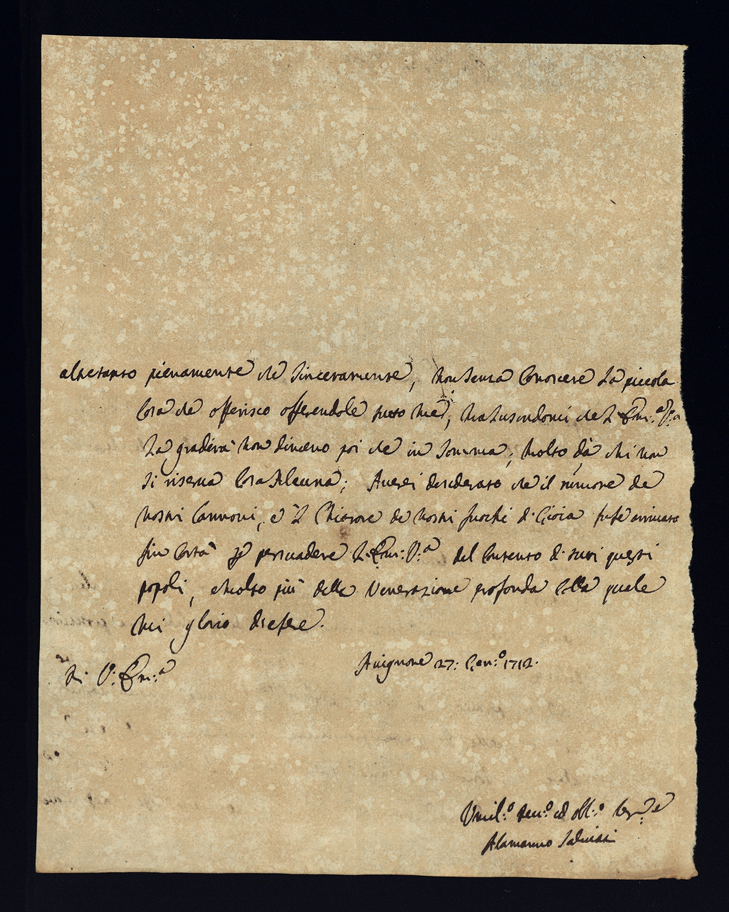 altretanto pienamente che sinceramente, non senza conoscere la piccola
cosa che offerisco offerendole tutto me; ma lusindomi che V. Em.ª P.ª
la gradirà non dimeno poi che in somma, molto dà chi non
si riserva cosa alcuna; Averei desiderato che il rumore de
nostri Cannoni, e il Chiarore de nostri fuochi di Gioia fusse arrivato
fin costà per persuadere V. Em.ª P.ª del contento di tutti questi
popoli, e molto più della Venerazione profonda colla quale
mi glorio d'essere.
Di V. Em.ª
Avignone 27: Gen.º 1712.
Umil.º dev.º ed obl.º
Alamanno Salviati